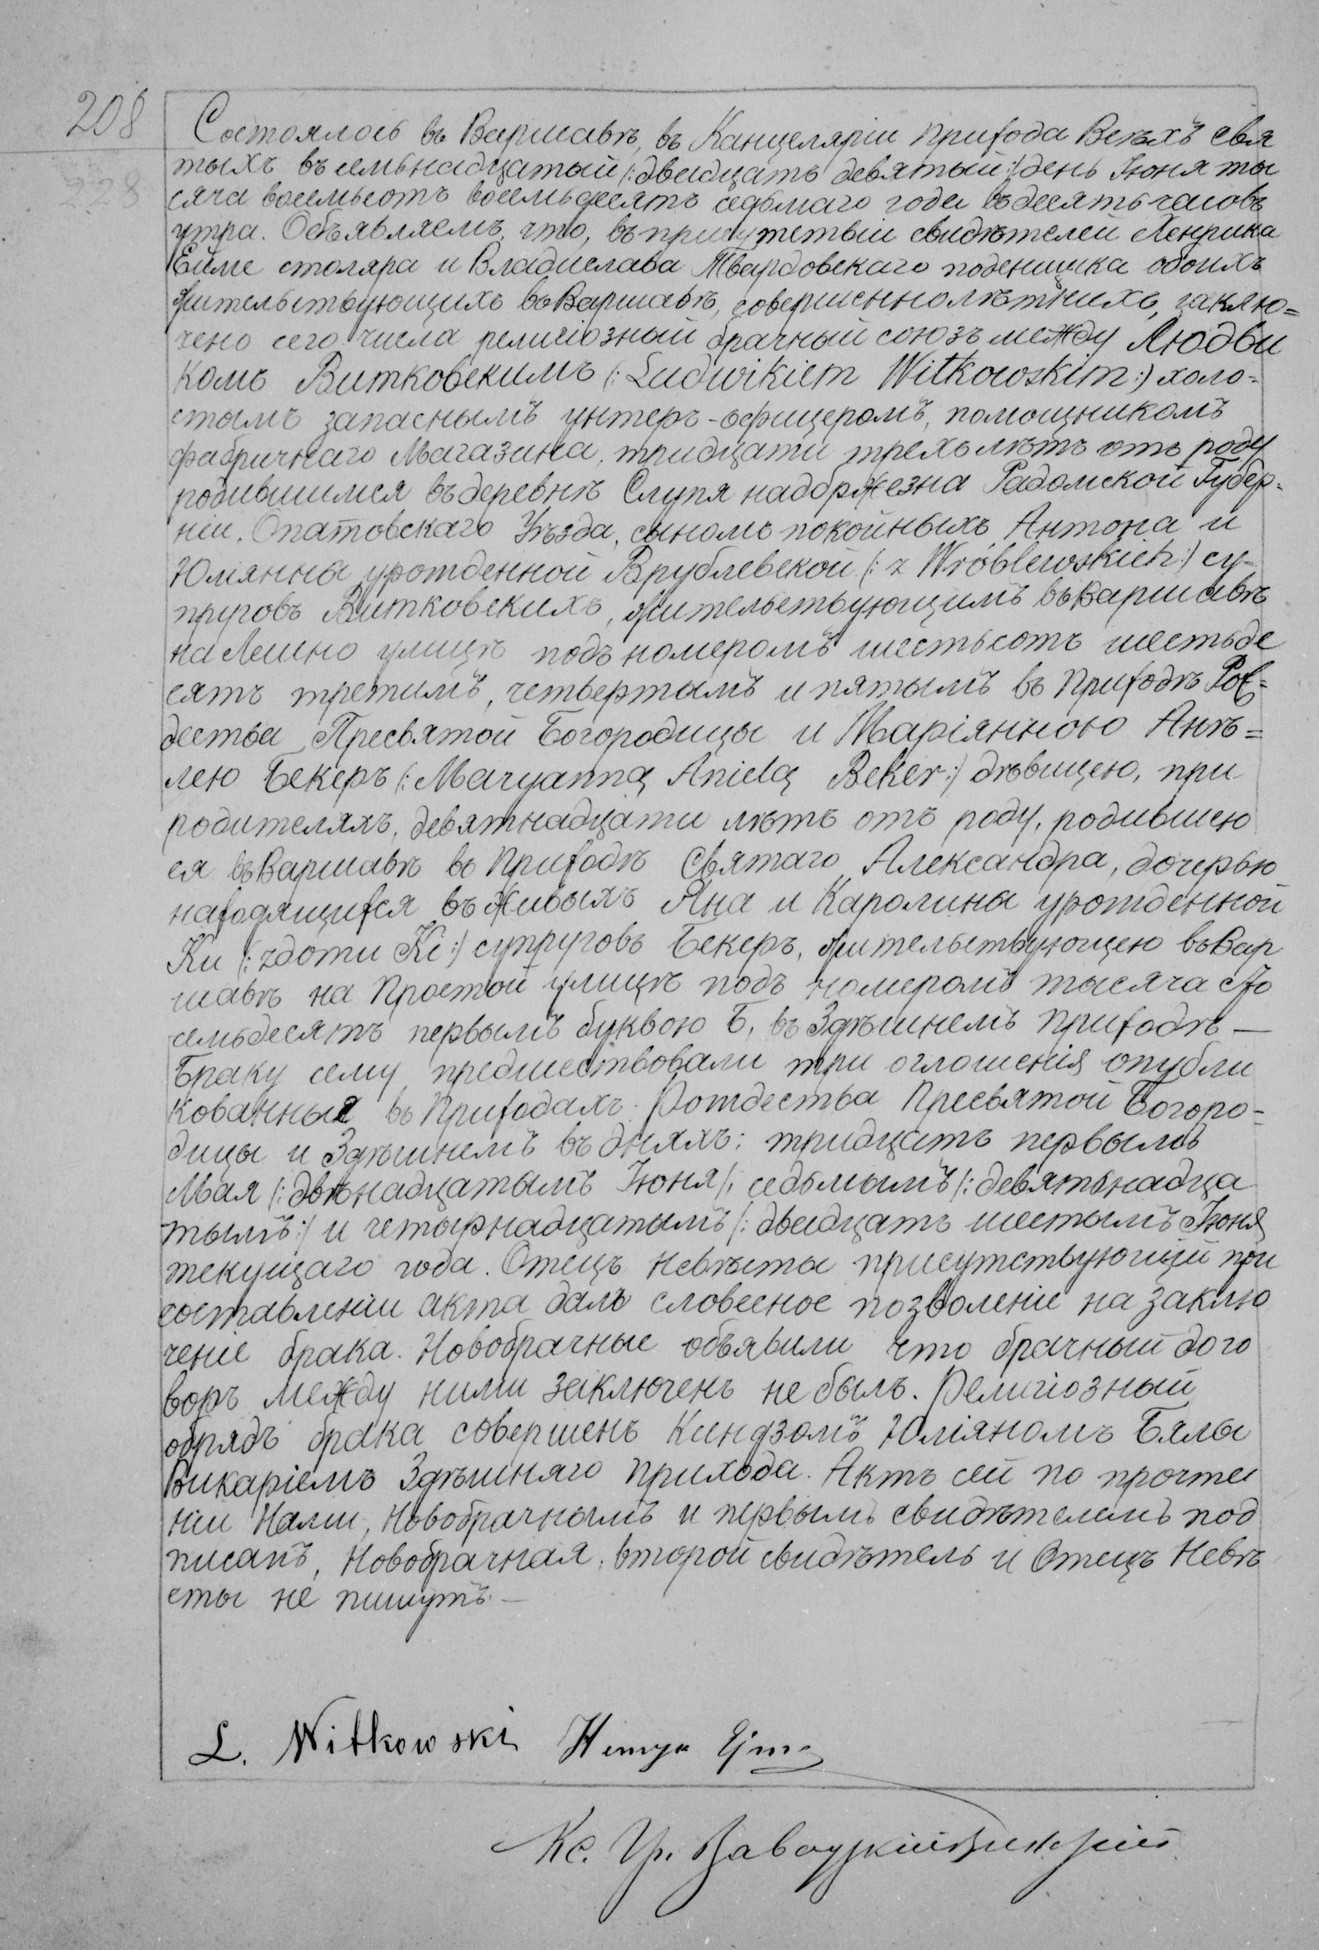 208
228
Состоялось въ Варшавѣ, въ Канцеляріи Прихода Всѣхъ Свя
тыхъ въ семьнадцатый /:двадцать девятый:/ день Іюня ты
сяча восемьсотъ восемьдесятъ седьмаго года въ десять часовъ
утра. Объявляемъ, что, въ присутствіи свидѣтелей Генрика
Ейме столяра и Владислава Твардовскаго поденщика обоихъ
жительствующихъ въ Варшавѣ, совершеннолѣтнихъ, заклю=
чено сего числа религіозный брачный союзъ между Людви
комъ Витковскимъ (: Ludwikiem Witkowskim :) холо=
стымъ запаснымъ унтеръ-офицеромъ, помощникомъ
фабричнаго Магазина, тридцати трехъ лѣтъ отъ роду
родившимся въ деревнѣ Слупя надбржезна Радомской Губер=
ніи, Опатовскаго Уѣзда, сыномъ покойныхъ Антона и
Юліянны урожденной Врублевской (: z Wróblewskich :) су-
пруговъ Витковскихъ, жительствующимъ въ Варшавѣ
на Лешно улицѣ подъ номеромъ шестьсотъ шестьде
сятъ третимъ, четвертымъ и пятымъ въ Приходѣ Рож=
дества Пресвятой Богородицы и Маріянною Анѣ=
лею Бекеръ (: Maryanną Anielą Beker :) дѣвицею, при
родителяхъ, девятнадцати лѣтъ отъ роду, родившею
ся въ Варшавѣ въ Приходѣ Святаго Александра, дочерью
находящихся въ живыхъ Яна и Каролины урожденной
Ки (: z domu Ki :) супруговъ Бекеръ, жительствующею въ Вар
шавѣ на Простой улицѣ подъ номеромъ тысяча сто
семьдесятъ первымъ буквою Б, въ Здѣшнемъ Приходѣ —
Браку сему предшествовали три оглошенія опубли
кованныя въ Приходахъ Рождества Пресвятой Богоро-
дицы и Здѣшнемъ въ дняхъ: тридцать первымъ
Мая /:двѣнадцатымъ Іюня/, седьмымъ /:девятьнадца
тымъ:/ и четырнадцатымъ /:двадцать шестымъ Іюня
текущаго года. Отецъ Невѣсты присутствующій при
составленіи акта далъ словесное позволеніе на заклю
ченіе брака. Новобрачные объявили что брачный дого
воръ между ними заключенъ не былъ. Религіозный
обрядъ брака совершенъ Ксендзомъ Юліяномъ Бялы
Викаріемъ Здѣшняго Прихода. Актъ сей по прочте
ніи Нами, Новобрачнымъ и первымъ свидѣтелемъ под
писанъ, Новобрачная, второй свидѣтель и Отецъ Невѣ
сты не пишутъ. —
L. Witkowski Henryk Ejme
Кс.